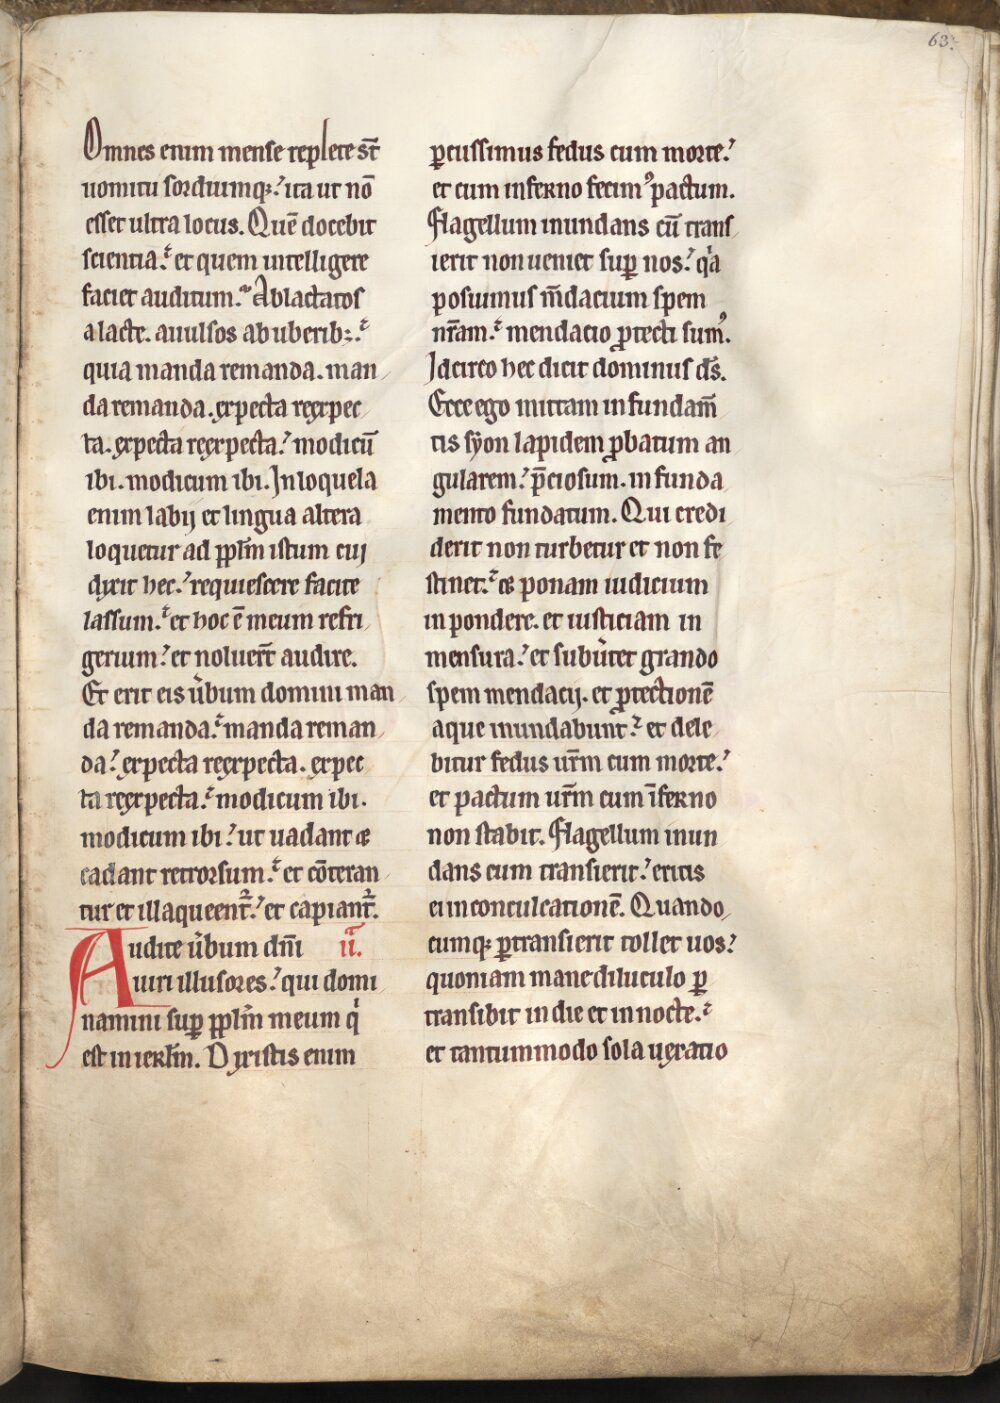 63.
Omnes enim mense replete st̄
uomitu sordiumq;. ita ut nō
esset ultra locus. Quē docebit
scientia. et quem intelligere
faciet auditum. Ablactatos
a lacte. auulsos ab uberib;.
quia manda remanda. man
da remanda. expecta reexpec
ta. expecta reexpecta. modicū
ibi. modicum ibi. In loquela
enim labij et lingua altera
loquetur ad pplm̄ istum cuj
dixit hec. requiescere facite
lassum. et hoc ē meum refri
gerium. et noluert̄ audire.
Et erit eis ubum domini man
da remanda. manda reman
da. expecta reexpecta. expec
ta reexpecta. modicum ibi.
modicum ibi. ut uadant &
cadant retrorsum. et cōteran
tur et illaqueent. et capiant.
Audite ubum dn̄i ii.
uiri illusores. qui domi
namini sup pplm̄ meum q
est in ierlm̄. Dixistis enim
pcussimus fedus cum morte.
et cum inferno fecimꝰ pactum.
Flagellum inundans cū trans
ierit non ueniet sup nos. qa
posuimus m̄dacium spem
nr̄am. mendacio ptecti sumꝰ.
Idcirco hec dicit dominus ds̄.
Ecce ego mittam in fundam̄
tis syon lapidem pbatum an
gularem. p̄ciosum. in funda
mento fundatum. Qui credi
derit non turbetur et non fe
stinet. & ponam iudicium
in pondere. et iusticiam in
mensura. et subutet grando
spem mendacij. et ptectionē
aque inundabunt. et dele
bitur fedus ur̄m cum morte.
et pactum ur̄m cum īferno
non stabit. Flagellum inun
dans cum transierit. eritis
ei in conculcationē. Quando
cumq; ptransierit tollet uos.
quoniam mane diluculo p
transibit in die et in nocte.
et tantummodo sola uexatio